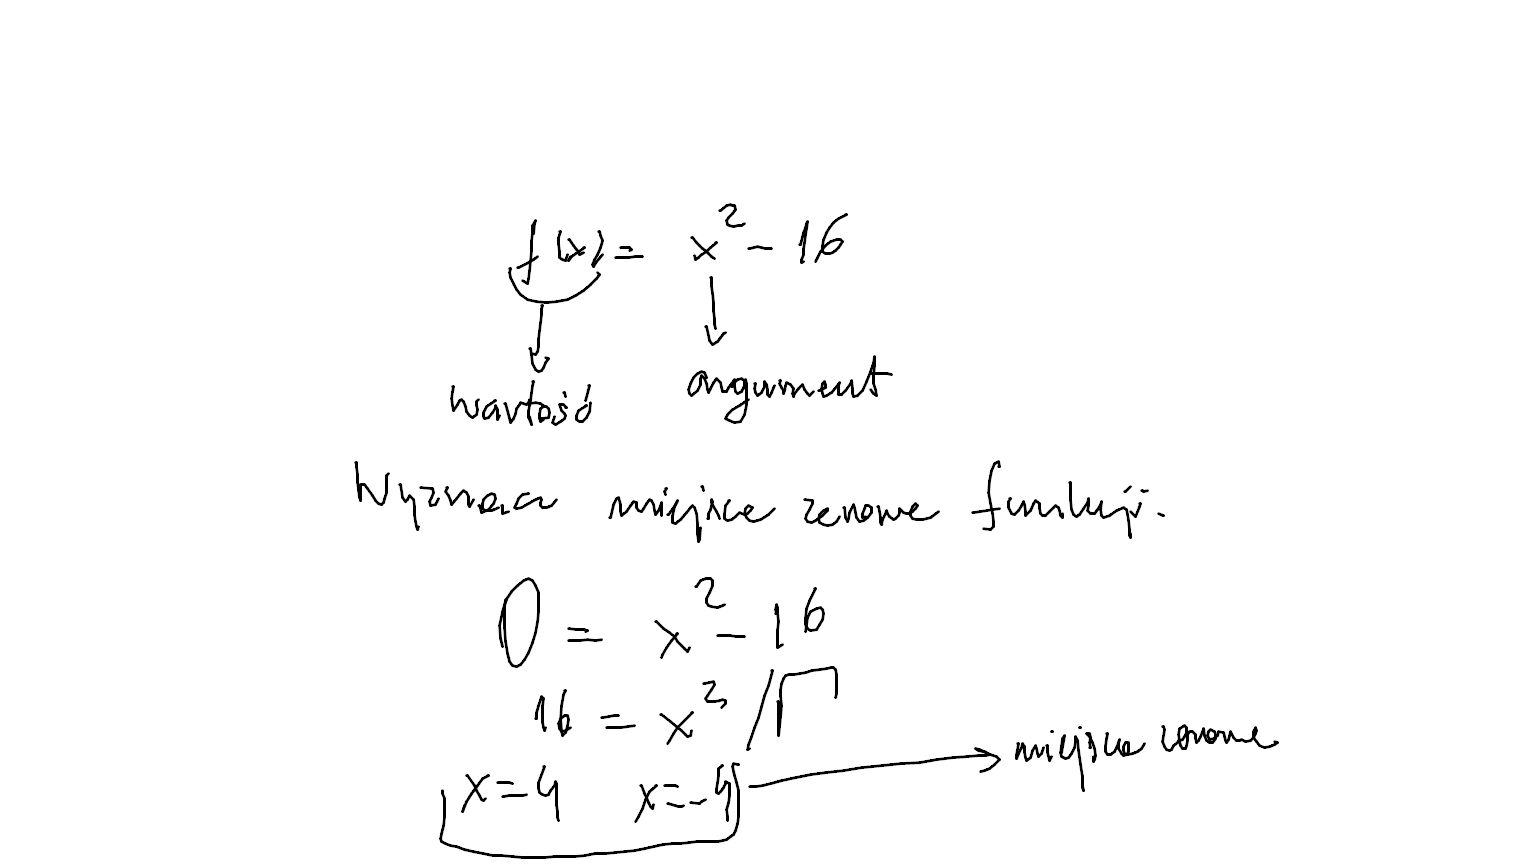 f(x) = x² - 16
wartość argument
Wyznacz miejsce zerowe funkcji.
0 = x² - 16
16 = x² /√
x = 4 x = -4 → miejsce zerowe